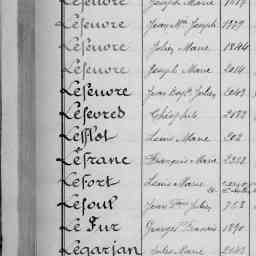 Lefeuvre Joseph Marie
Lefeuvre Jean Mie Joseph 1879
Lefeuvre Jules Marie 1844
Lefeuvre Joseph Marie 2014
Lefeuvre Jean Bapte Jules 2043
Lefeuvres Théophile 2082
Lefflot Louis Marie 202
Lefranc François Marie 2312
Lefort Louis Marie
Lefoul Jean Julien 753
Le Fur Georges Francis 1890
Legarjan Jules Marie 2143